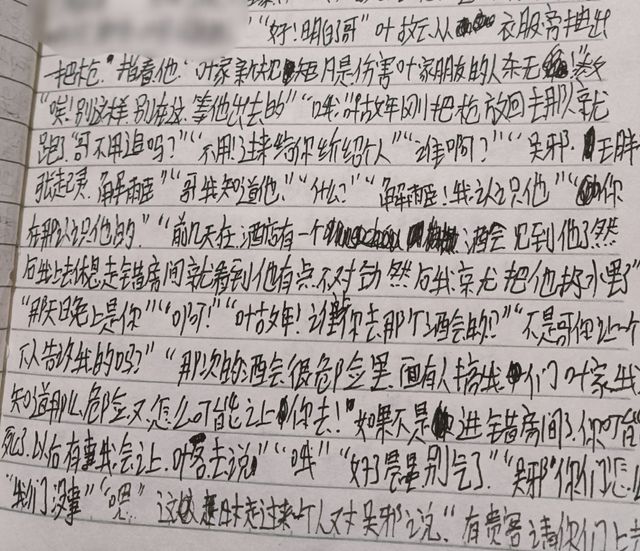 "好!明白了哥"叶故从衣服旁抽出
一把枪.指着他."叶家家规矩凡是伤害叶家朋友的人杀无赦"
"唉!别这样别在这.等他出去的""哦."叶故年刚把枪放回去那人就
跑了."哥不用追吗?""不用!过来给你介绍个人""谁啊?""吴邪.王胖
张起灵.解雨臣""哥我知道他.""什么?""解雨臣!我认识他""你
在那认识他的""前几天在酒店有一个酒会见到他了然
后我上去休息走错房间就看到他有点不对劲然后我就把他扔水里了"
"那天晚上是你""啊!""叶故年!谁让你去那个酒会的?""不是哥你让一个
人告诉我的吗?""那次的酒会很危险里面有人搞我们叶家我
知道那么危险又怎么可能让你去!""如果不是进错房间了.你可能
死了.以后有事我会让.叶客去说""哦""好了 别气了""吴邪你们怎
"我们没事""嗯"这时走过来个人对吴邪说."有贵客请你们上去